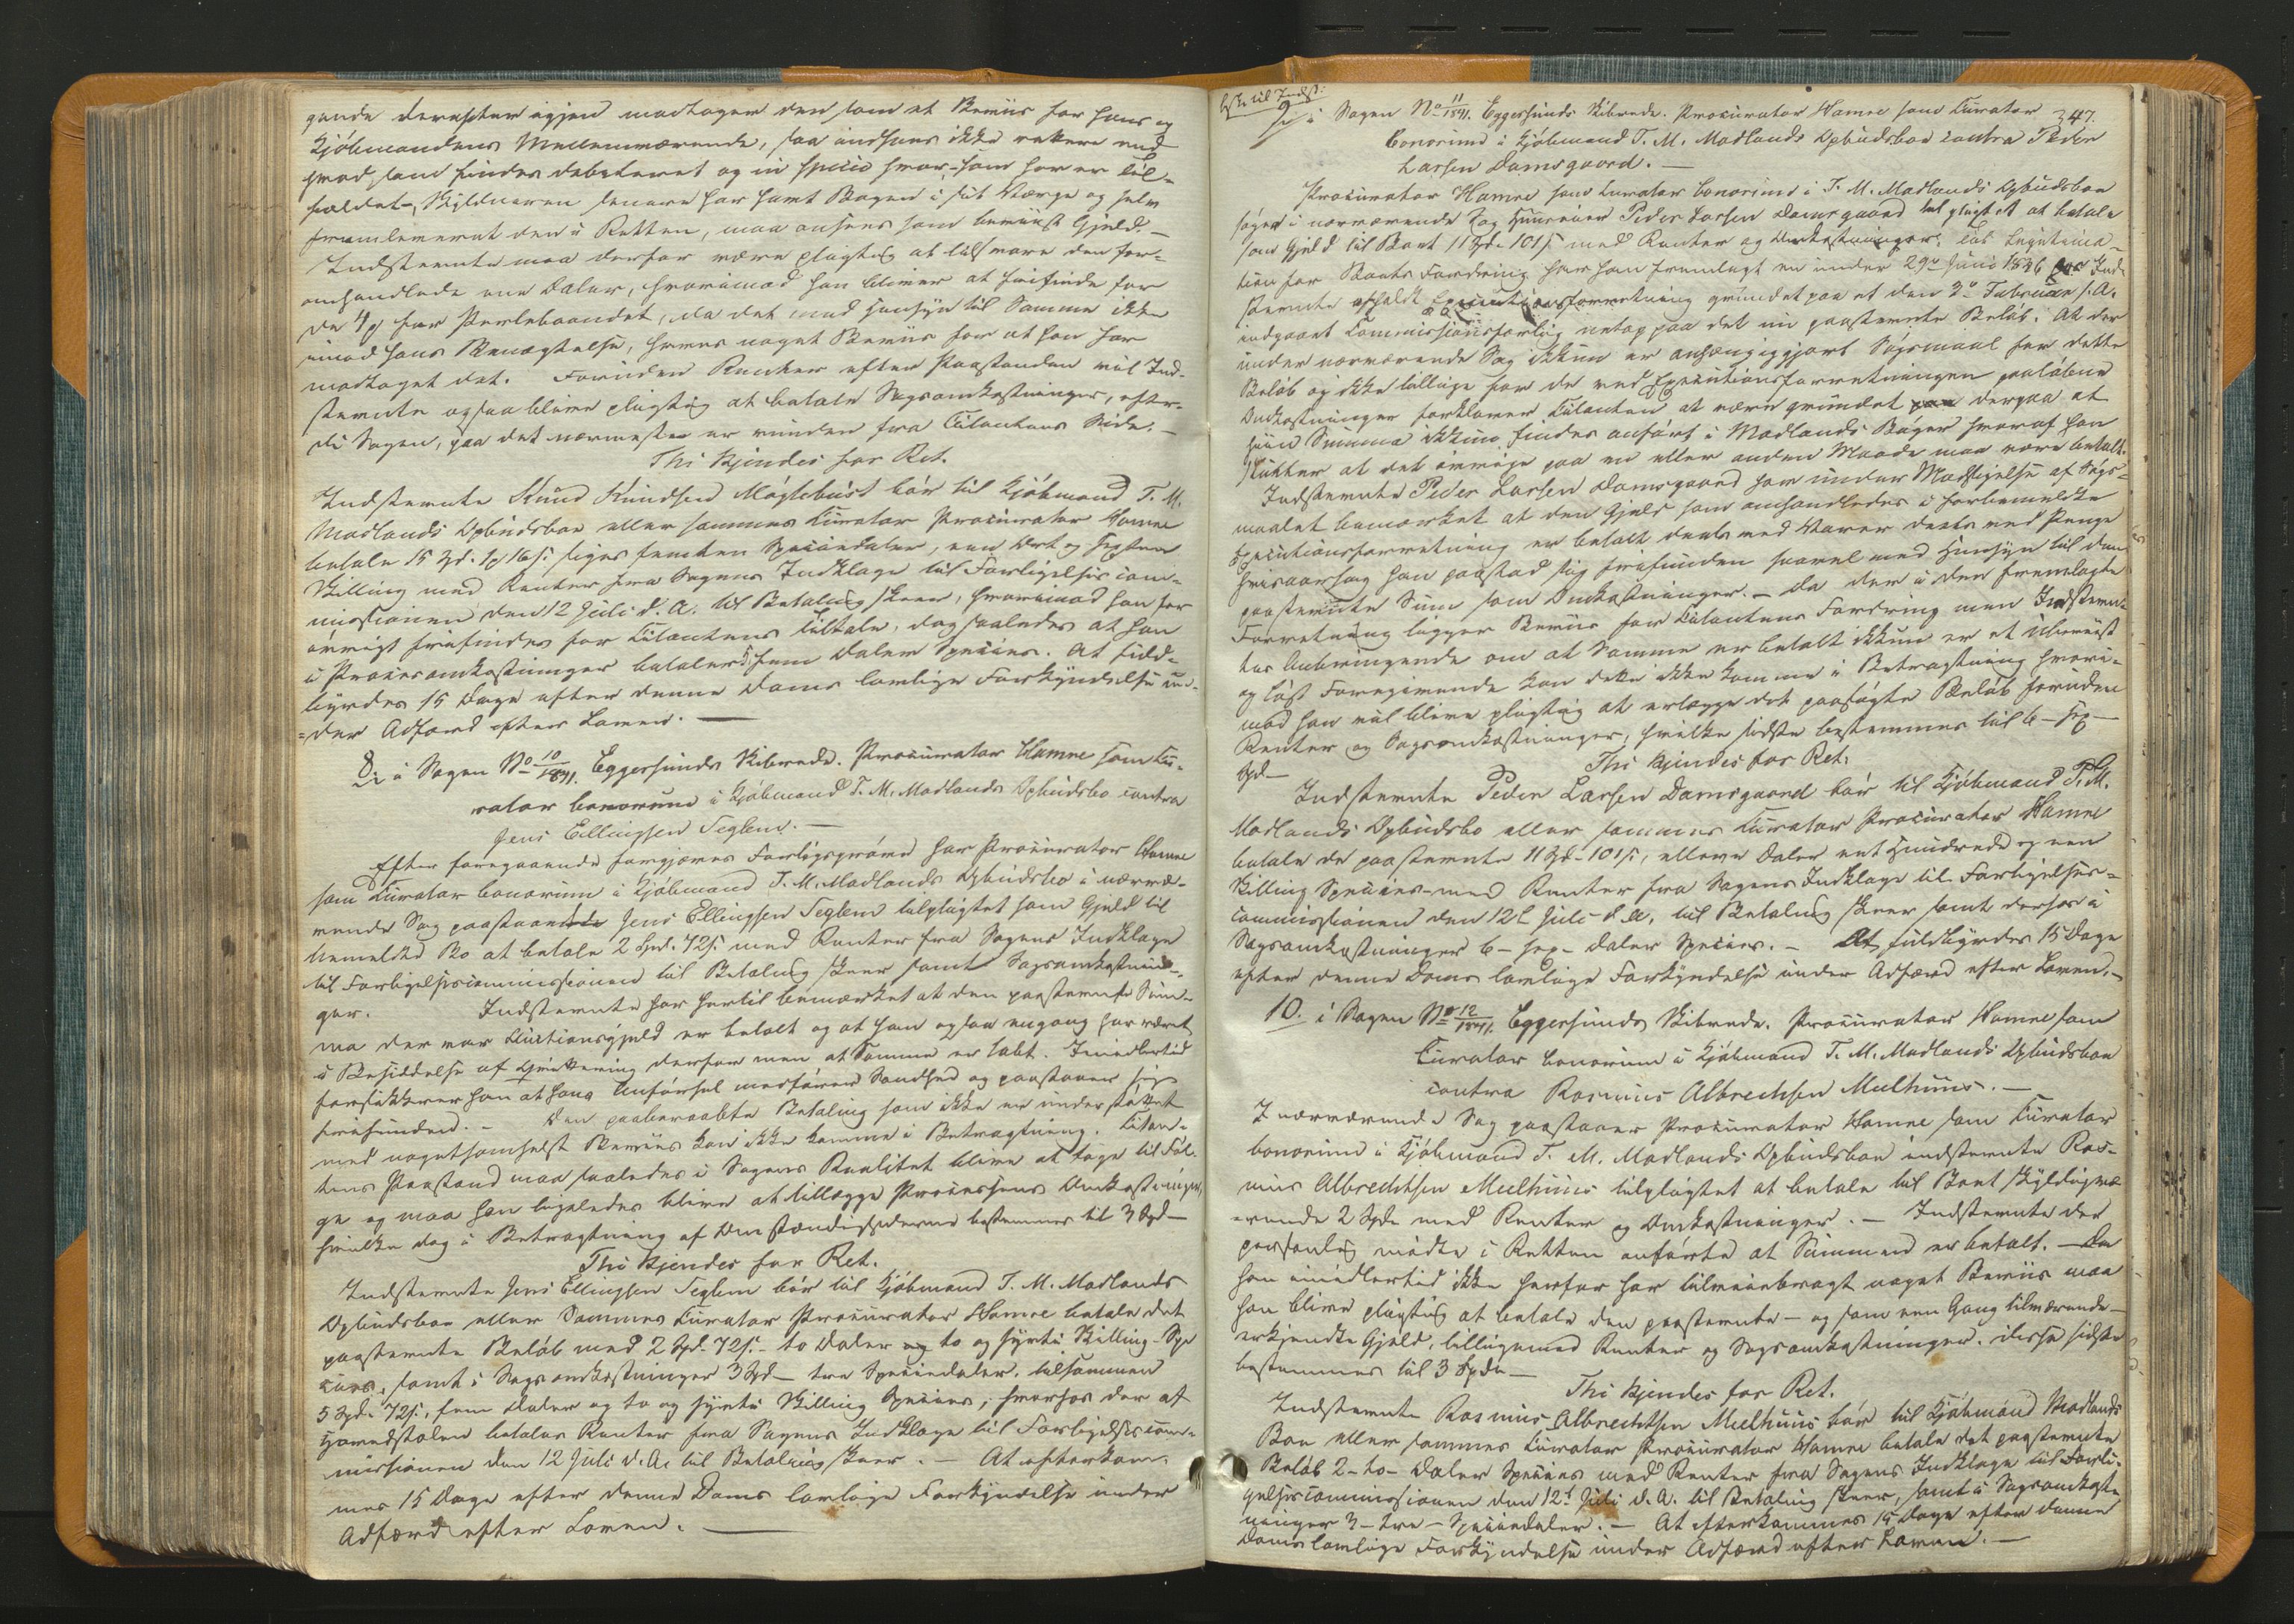 gende derefter igjen modtagen den som et Beviis for hans og
Kjøbmandens Mellemværende, saa indsees ikke rettere end
hvad som findes debiteret og in specie hvor som her er Til-
fældet, Skyldneren senere har havt Bogen i sit Værge og selv
fremleveret den i Retten, maa ansees som beviist Gjeld. —
Indstevnte maa derfor være pligtig at tilsvare den for-
omhandlede ene Daler, hvorimod han bliver at frifinde for
de 4 for Perlebaandet, da det med Hensyn til Samme ikke
imod hans Benægtelse, haves noget Beviis for at han har
modtaget det. Foruden Renter efter Paastanden vil Ind-
stevnte ogsaa blive pligtig at betale Sagsomkostninger, efter-
di Sagen, paa det nærmeste er vunden fra Citantens Side. —
Thi kjendes for Ret.
Indstevnte Knud Knudsen Møglebust bør til Kjøbmand T. M.
Madlands Opbudsboe eller sammes Curator Procurator Hamre
betale 15 Spd. 1 16 s. siger femten Speciedaler, een Ort og sexten
Skilling med Renter fra Sagens Indklage til Forligelsescom-
missionen den 12 Juli d. A. til Betaling skeer, hvorimod han for
øvrigt frifindes for Citantens Tiltale, dog saaledes at han
i Procesomkostninger betaler 5, fem Daler Species. At fuld-
byrdes 15 Dage efter denne Doms lovlige Forkyndelse un-
der Adfærd efter Loven. —
8, i Sagen No 10/1841. Eggersunds Skibrede. Procurator Hamre som Cu-
rator bonorum i Kjøbmand T. M. Madlands Opbudsbo contra
Jens Ellingsen Seglem. —
Efter foregaaende forgjæves Forligsprøve har Procurator Hamre
som Curator bonorum i Kjøbmand T. M. Madlands Opbudsbo i nærvæ-
rende Sag paastaaet Jens Ellingsen Seglem tilpligtet som Gjeld til
bemeldte Bo at betale 2 Spd. 72 s. med Renter fra Sagens Indklage
til Forligelsescommissionen til Betaling skeer samt Sagsomkostnin-
ger. Indstevnte har hertil bemærket at den paastevnte Sum-
ma der var Auctionsgjeld er betalt og at han ogsaa engang har været
i Besiddelse af Qvittering derfor men at Samme er tabt. Imidlertid
forsikkrer han at hans Anførsel medfører Sandhed og paastaaer sig
frifunden. — Den paaberaabte Betaling som ikke er understøttet
med nogetsomhelst Beviis kan ikke komme i Betragtning. Citan-
tens Paastand maa saaledes i Sagens Realitet blive at tage til Føl-
ge og maa han ligeledes blive at tillægge Processens Omkostninger,
hvilke dog i Betragtning af Omstændighederne bestemmes til 3 Spd —
Thi kjendes for Ret.
Indstevnte Jens Ellingsen Seglem bør til Kjøbmand T. M. Madlands
Opbudsboe eller Sammes Curator Procurator Hamre betale det
paastevnte Beløb med 2 Spd. 72 s. — to Daler og to og syvti Skilling Spe
cies, samt i Sagsomkostninger 3 Spd — tre Speciedaler, tilsammen
5 Spd. 72 s., fem Daler og to og syvti Skilling Species, hvorhos der af
Hovedstolen betales Renter fra Sagens Indklage til Forligelsescom-
missionen den 12 Juli d. A. til Betaling skeer. — At efterkom-
mes 15 Dage efter denne Doms lovlige Forkyndelse under
Adfærd efter Loven. —
347.
9, i Sagen No 11/1841. Eggersunds Skibrede. Procurator Hamre som Curator
bonorum i Kjøbmand T. M. Madlands Opbudsboe contra Peder
Larsen Damsgaard. —
Procurator Hamre som Curator bonorum i T. M. Madlands Opbudsboe
søger i nærværende Sag Huusmand Peder Larsen Damsgaard tilpligtet at betale
som Gjeld til Boet 11 Spd. 101 s. med Renter og Omkostninger. Til Legitima-
tion for Boets Fordring har han fremlagt en under 29de Juni 1836 hos Ind-
stevnte afholdt Executionsforretning grundet paa et den 3die Februar s. A.
indgaaet Commissionsforlig netop paa det nu paastevnte Beløb. At der
under nærværende Sag ikkun er anhængiggjort Søgsmaal for dette
Beløb og ikke tillige for de ved Executionsforretningen paaløbne
Omkostninger forklarer Citanten at være grundet derpaa at
hiin Summa ikkun findes anført i Madlands Bøger hvoraf han
slutter at det øvrige paa en eller anden Maade maa være betalt.
Indstevnte Peder Larsen Damsgaard har under Modsigelse af Søgs-
maalet bemærket at den Gjeld som omhandledes i forbemeldte
Executionsforretning er betalt deels med Varer deels med Penge
hvisaarsag han paastod sig frifunden saavel med Hensyn til den
paastevnte Sum som Omkostninger. — Da der i den fremlagte
Forretning ligger Beviis for Citantens Fordring men Indstevn-
tes Anbringende om at Samme er betalt ikkun er et ubeviist
og løst Foregivende kan dette ikke komme i Betragtning hvori-
mod han vil blive pligtig at erlægge det paasøgte Beløb foruden
Renter og Sagsomkostninger, hvilke sidste bestemmes til 6 — sex —
Spd —
Thi kjendes for Ret.
Indstevnte Peder Larsen Damsgaard bør til Kjøbmand T. M.
Madlands Opbudsbo eller sammes Curator Procurator Hamre
betale de paastevnte 11 Spd — 101 s., elleve Daler eet Hundrede og een
Skilling Species — med Renter fra Sagens Indklage til Forligelses-
commissionen den 12te Juli d. A. til Betaling skeer samt derhos i
Sagsomkostninger 6 — sex — Daler Species. — At fuldbyrdes 15 Dage
efter denne Doms lovlige Forkyndelse under Adfærd efter Loven. —
10. i Sagen No 12/1841. Eggersunds Skibrede. Procurator Hamre som
Curator bonorum i Kjøbmand T. M. Madlands Opbudsboe
contra Rasmus Albrechtsen Meelhuus. —
I nærværende Sag paastaaer Procurator Hamre som Curator
bonorum i Kjøbmand T. M. Madlands Opbudsboe indstevnte Ras-
mus Albrechtsen Meelhuus tilpligtet at betale til Boet skyldigvæ
rende 2 Spd. med Renter og Omkostninger. — Indstevnte der
personlig mødte i Retten anførte at Summen er betalt. — Da
han imidlertid ikke herfor har tilveiebragt noget Beviis maa
han blive pligtig at betale den paastevnte — og som een Gang tilværende —
erkjendte Gjeld, tilligemed Renter og Sagsomkostninger. disse sidste
bestemmes til 3 Spd. —
Thi kjendes for Ret.
Indstevnte Rasmus Albrechtsen Meelhuus bør til Kjøbmand Madlands
Boe eller sammes Curator Procurator Hamre betale det paastevnte
Beløb 2 — to — Daler Species med Renter fra Sagens Indklage til Forli-
gelsescommissionen den 12te Juli d. A. til Betaling skeer, samt i Sagsomkost-
ninger 3 — tre — Speciedaler. — At efterkommes 15 Dage efter denne
Doms lovlige Forkyndelse under Adfærd efter Loven. —